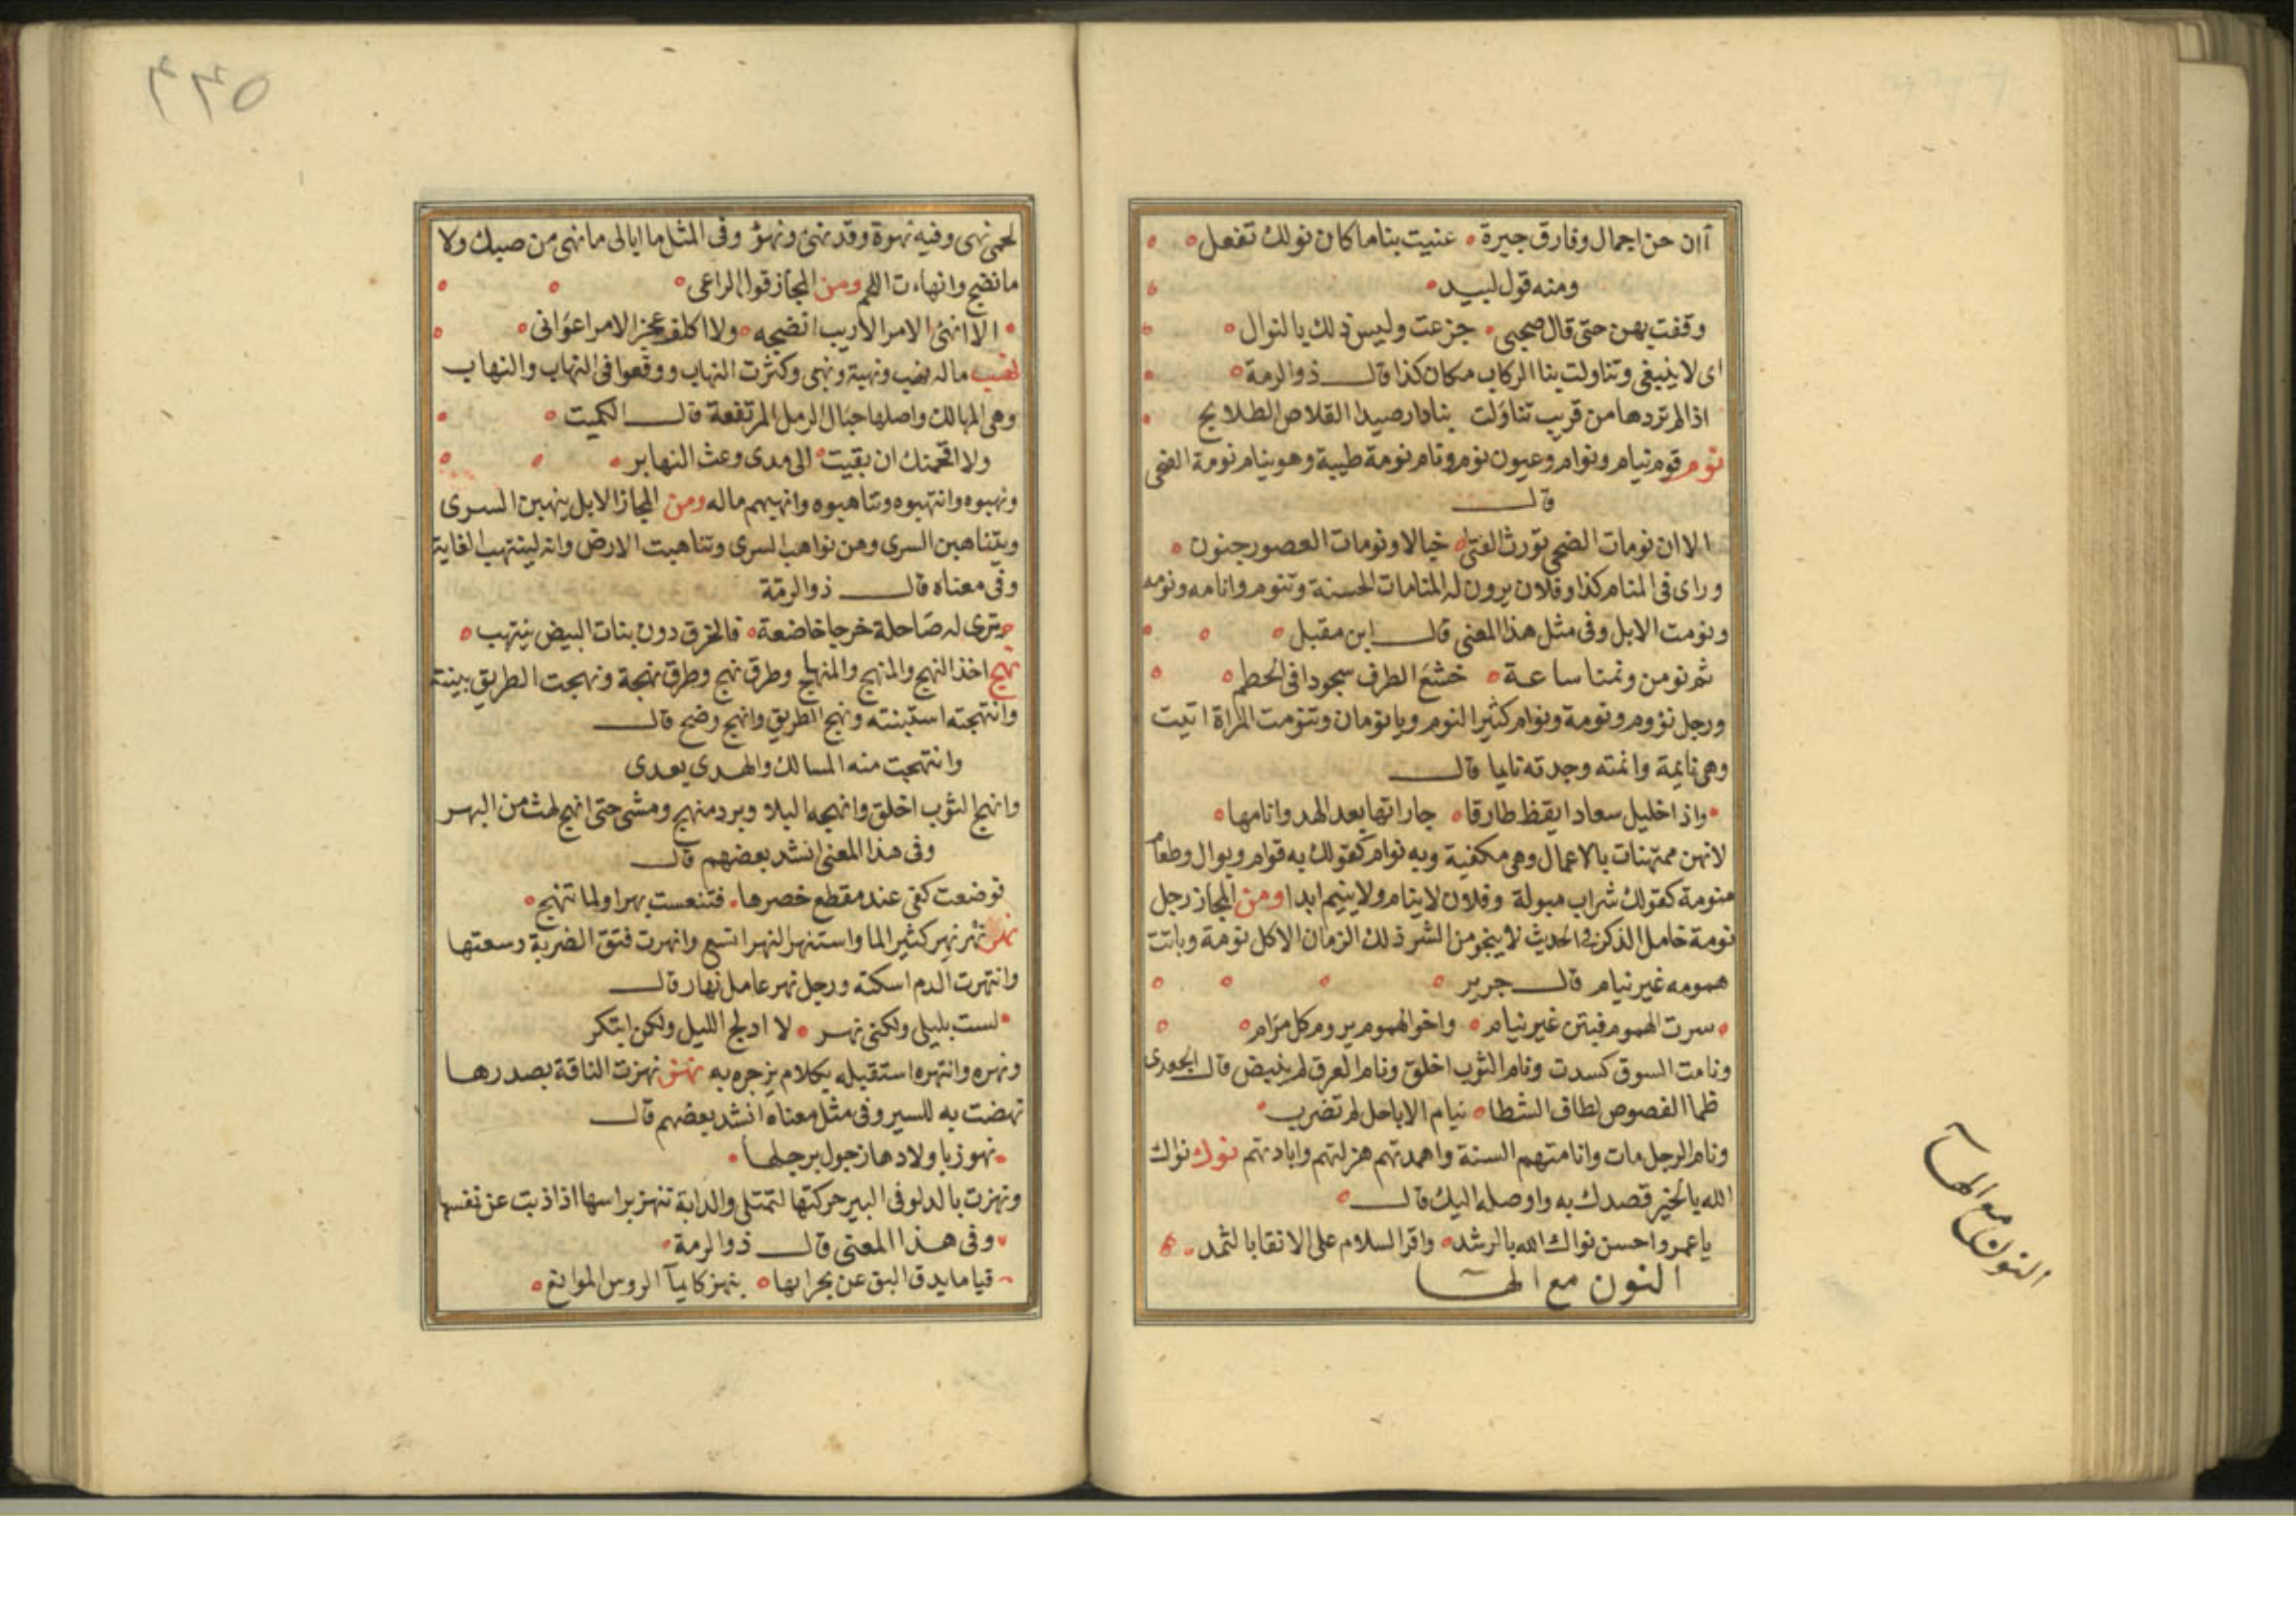 آان حن اجمال وفارق جيرة عنيت بنا ما كان نولك تفعل
ومنه قول لبيد
وقفت بهن حتى قال صحبى جزعت وليس ذلك بالنوال
اى لا ينبغى وتناولت بنا الركاب مكان كذا قال ذو الرمة
اذا لم تزدها من قريب تناولت بنا دار صيدا القلاص الطلايح
نوم قوم نيام ونوام وعيون نوم ونام نومة طيبة وهو ينام نومة الضحى
قال
الا ان نومات الضحى تورث الفتى خبالا ونومات العصور جنون
وراى فى المنام كذا وفلان يرون له المنامات الحسنة وتنوم وانامه ونومه
ونومت الابل وفى مثل هذا المعنى قال ابن مقبل
ثم نومن ونمنا ساعة خشع الطرف سجودا فى الخطم
ورجل نؤوم ونومة ونوام كثير النوم ويا نومان وتنومت المراة اتيت
وهى نايمة وانمته وجدته نايما قال
واذا خليل سعاد ايقظ طارقا جاراتها بعد الهدو انامها
لانهن ممتهنات بالاعمال وهى مكفية وبه نوام كقولك به قوام وبوال وطعام
منومة كقولك شراب مبولة وفلان لا ينام ولا ينيم ابدا ومن المجاز رجل
نومة خامل الذكر وفى الحديث لا ينجو من الشر ذلك الزمان الا كل نومة وباتت
همومه غير نيام قال جرير
سرت الهموم فبتن غير نيام واخو الهموم يروم كل مرام
ونامت السوق كسدت ونام الثوب اخلق ونام العرق لم ينبض قال الجعدى
ظما الفصوص لطاف الشظا نيام الاباجل لم تضرب
ونام الرجل مات وانامتهم السنة واهمدتهم هزلتهم وابادتهم نوك نواك
الله بالخير قصدك به واوصله اليك قال
يا عمرو احسن نواك الله بالرشد واقر السلام على الانقا بالثمد
النون مع الها
النون مع الها
٣٣٥
لحم نهى وفيه نهوة وقد نهئ ونهؤ وفى المثل ما ابالى ما نهى من ضبك ولا
ما نضج وانهاءت اللحم ومن المجاز قول الراعى
الا انهئ الامر الاريب انضجه ولا اكلف عجز الامر اعوانى
نهب ماله نهب ونهبة ونهبى وكثرت النهاب ووقعوا فى النهاب والنهاب
وهى المهالك واصلها حبال الرمل المرتفعة قال الكميت
ولا اقحمنك ان بقيت الى مدى وعث النهابر
ونهبوه وانتهبوه وتناهبوه وانهبهم ماله ومن المجاز الابل ينهبن السرى
ويتناهبن السرى وهن نواهب السرى وتناهبت الارض وانه لينتهب الغاية
وفى معناه قال ذو الرمة
وترى له صاحله خرجا خاضعة فالخرق دون بنات البيض ينتهب
نهج اخذ النهج والمنهج والمنهاج وطرق نهج وطرق نهجة ونهجت الطريق بينته
وانتهجته استبنته ونهج الطريق وانهج وضح قال
وانتهجت منه المسالك والهدى يعدى
وانهج الثوب اخلق وانهجه البلا وبرد منهج ومشى حتى انهج لهث من البهر
وفى هذا المعنى انشد بعضهم قال
فوضعت كفى عند مقطع خصرها فتنفست بهرا ولما تنهج
نهر نهر نهر كثير الما واستنهر النهر اتسع وانهرت فتق الضربة وسعتها
وانهرت الدم اسكته ورجل نهر عامل نهار قال
لست بليلى ولكنى نهر لا ادلج الليل ولكن ابتكر
ونهره وانتهره استقبله بكلام يزجره به نهز نهزت الناقة بصدرها
نهضت به للسير وفى مثل معناه انشد بعضهم قال
نهوز باولادها زجول برجلها
ونهزت بالدلو فى البير حركتها لتمتلى والدابة تنهز براسها اذا ذبت عن نفسها
وفى هذا المعنى قال ذو الرمة
قياما يذق البق عن نخراتها بنهز كايمآ الروس الموانع